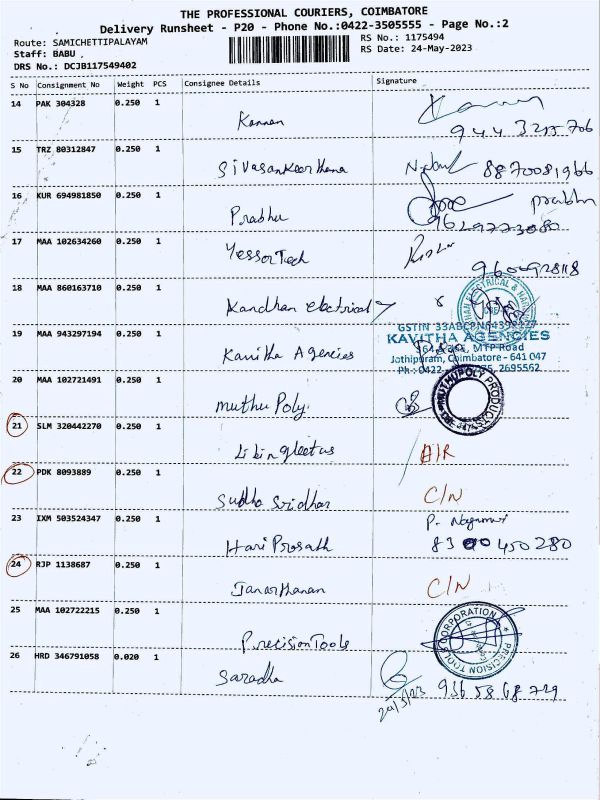 THE PROFESSIONAL COURIERS, COIMBATORE
Delivery Runsheet - P20 - Phone No.:0422-3505555 - Page No.:2
Route: SAMICHETTIPALAYAM
Staff: BABU .
DRS No.: DCJB117549402
RS No.: 1175494
RS Date: 24-May-2023
S No Consignment No Weight PCS Consignee Details Signature
14 PAK 304328 0.250 1
Kannan
15 TRZ 80312847 0.250 1
Sivasankeerthana 8870081966
16 KUR 694981850 0.250 1 prabhu
Prabhu 9629773080
17 MAA 102634260 0.250 1
YessorTech
18 MAA 860163710 0.250 1
Kandhan electrical
GSTIN
19 MAA 943297194 0.250 1 KAVITHA AGENCIES
MTP Road
Kavitha Agencies Jothipuram, Coimbatore - 641 047
Ph : 0422 2695562
20 MAA 102721491 0.250 1 MUTHUPOLY PRODUCTS
muthu Poly.
21 SLM 320442270 0.250 1
A/R
22 PDK 8093889 0.250 1
Sudha Sridhar C/N
23 IXM 503524347 0.250 1
Hari Prosath 8300450280
24 RJP 1138687 0.250 1
Janarthanan C/N
25 MAA 102722215 0.250 1 PRECISION TOOLS CORPORATION
Precision Tools
26 HRD 346791058 0.020 1
Saradha